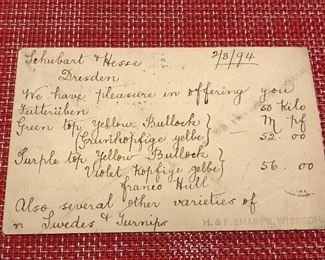 Schubart & Hesse 2/3/94
Dresden
We have pleasure in offering you
Futterüben 50 Kilo
Green top Yellow Bullock } M pf
(Grunkopfige gelbe) 52.00
Purple top Yellow Bullock }
Violet Kopfige gelbe } 56 00
franco Hull
Also several other varieties of
Swedes & Turnips
H. & F. SHARPE, WISBECH